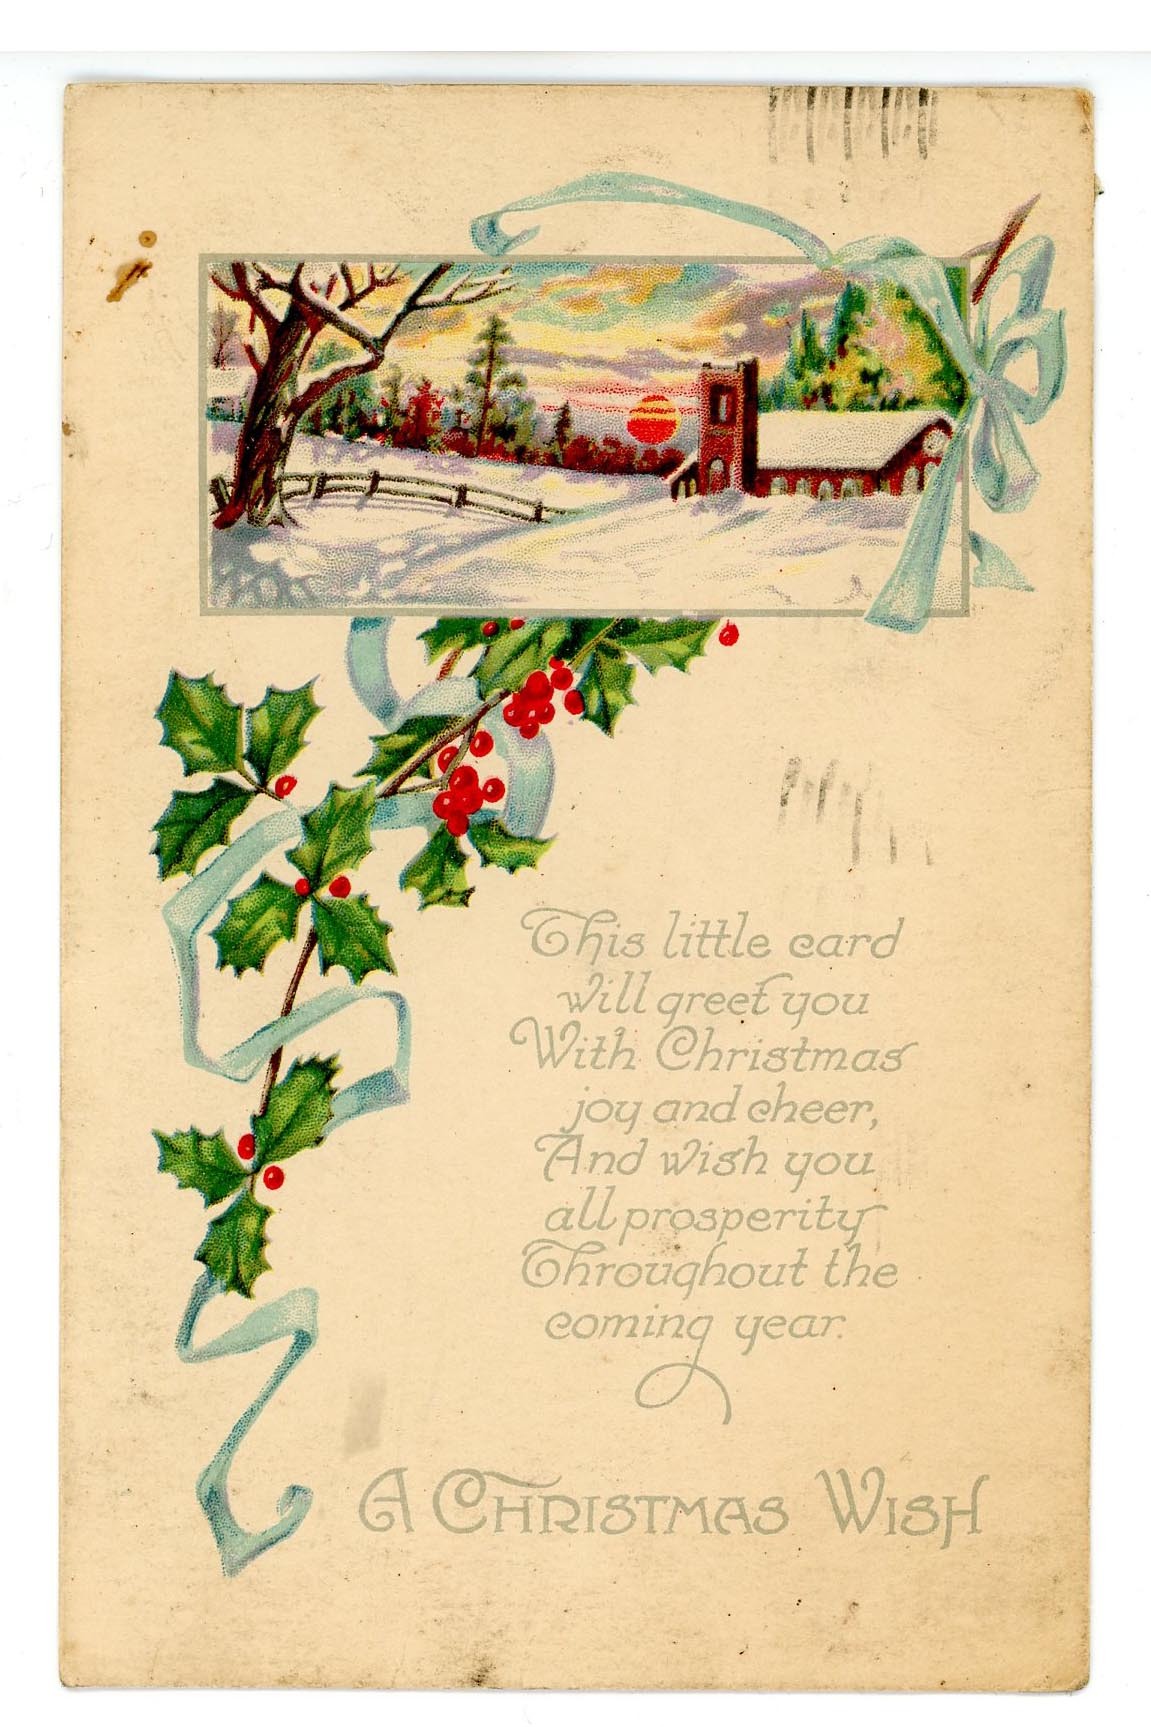 This little card
will greet you
With Christmas
joy and cheer,
And wish you
all prosperity
Throughout the
coming year.
A CHRISTMAS WISH